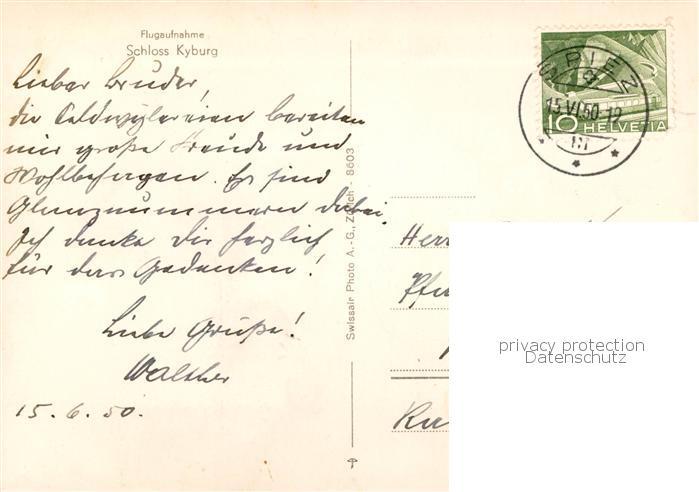 Flugaufnahme
Schloss Kyburg
Lieber Bruder,
die Seldwylereien bereiten
mir große Freude und
Wohlbehagen. Es sind
Glanznummern dabei.
Ich danke Dir herzlich
für das Gedenken!
Liebe Grüße!
Walther
15.6.50.
Swissair Photo A.-G., Zürich - 8603
SPIEZ
15.VI.50-12
10 HELVETIA
Herr
privacy protection
Datenschutz